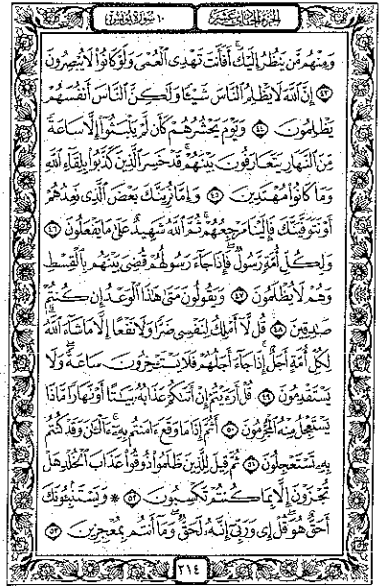 الجزء الحادي عشر ١٠ سورة يونس
وَمِنْهُم مَّن يَنظُرُ إِلَيْكَ أَفَأَنتَ تَهْدِى ٱلْعُمْىَ وَلَوْ كَانُوا۟ لَا يُبْصِرُونَ
﴿٤٣﴾ إِنَّ ٱللَّهَ لَا يَظْلِمُ ٱلنَّاسَ شَيْـًٔا وَلَـٰكِنَّ ٱلنَّاسَ أَنفُسَهُمْ
يَظْلِمُونَ ﴿٤٤﴾ وَيَوْمَ يَحْشُرُهُمْ كَأَن لَّمْ يَلْبَثُوٓا۟ إِلَّا سَاعَةً
مِّنَ ٱلنَّهَارِ يَتَعَارَفُونَ بَيْنَهُمْ ۚ قَدْ خَسِرَ ٱلَّذِينَ كَذَّبُوا۟ بِلِقَآءِ ٱللَّهِ
وَمَا كَانُوا۟ مُهْتَدِينَ ﴿٤٥﴾ وَإِمَّا نُرِيَنَّكَ بَعْضَ ٱلَّذِى نَعِدُهُمْ
أَوْ نَتَوَفَّيَنَّكَ فَإِلَيْنَا مَرْجِعُهُمْ ثُمَّ ٱللَّهُ شَهِيدٌ عَلَىٰ مَا يَفْعَلُونَ ﴿٤٦﴾
وَلِكُلِّ أُمَّةٍ رَّسُولٌ ۖ فَإِذَا جَآءَ رَسُولُهُمْ قُضِىَ بَيْنَهُم بِٱلْقِسْطِ
وَهُمْ لَا يُظْلَمُونَ ﴿٤٧﴾ وَيَقُولُونَ مَتَىٰ هَـٰذَا ٱلْوَعْدُ إِن كُنتُمْ
صَـٰدِقِينَ ﴿٤٨﴾ قُل لَّآ أَمْلِكُ لِنَفْسِى ضَرًّا وَلَا نَفْعًا إِلَّا مَا شَآءَ ٱللَّهُ ۗ
لِكُلِّ أُمَّةٍ أَجَلٌ ۚ إِذَا جَآءَ أَجَلُهُمْ فَلَا يَسْتَـْٔخِرُونَ سَاعَةً ۖ وَلَا
يَسْتَقْدِمُونَ ﴿٤٩﴾ قُلْ أَرَءَيْتُمْ إِنْ أَتَىٰكُمْ عَذَابُهُۥ بَيَـٰتًا أَوْ نَهَارًا مَّاذَا
يَسْتَعْجِلُ مِنْهُ ٱلْمُجْرِمُونَ ﴿٥٠﴾ أَثُمَّ إِذَا مَا وَقَعَ ءَامَنتُم بِهِۦٓ ۚ ءَآلْـَٔـٰنَ وَقَدْ كُنتُم
بِهِۦ تَسْتَعْجِلُونَ ﴿٥١﴾ ثُمَّ قِيلَ لِلَّذِينَ ظَلَمُوا۟ ذُوقُوا۟ عَذَابَ ٱلْخُلْدِ هَلْ
تُجْزَوْنَ إِلَّا بِمَا كُنتُمْ تَكْسِبُونَ ﴿٥٢﴾ ۞ وَيَسْتَنۢبِـُٔونَكَ
أَحَقٌّ هُوَ ۖ قُلْ إِى وَرَبِّىٓ إِنَّهُۥ لَحَقٌّ ۖ وَمَآ أَنتُم بِمُعْجِزِينَ ﴿٥٣﴾
٢١٤